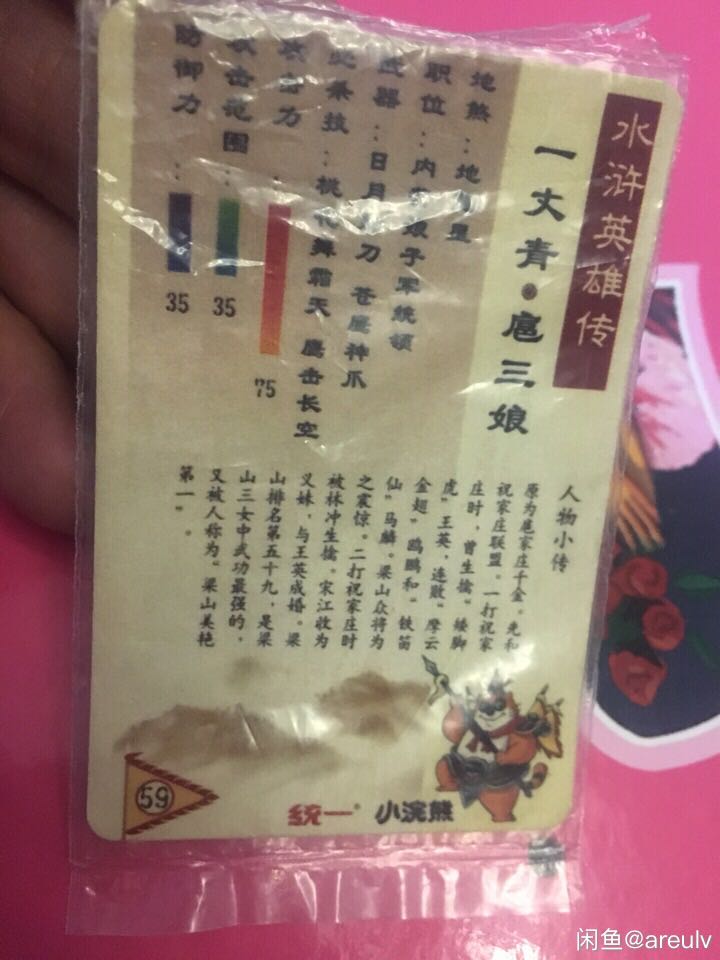 水浒英雄传
一丈青·扈三娘
地煞：地星
职位：内娘子军统领
武器：日月刀 苍鹰神爪
必杀技：桃花舞霜天 鹰击长空
攻击力：75
攻击范围：35
防御力：35
人物小传
原为扈家庄千金。先和
祝家庄联盟。一打祝家
庄时，曾生擒“矮脚
虎”王英，连败“摩云
金翅”鸥鹏和“铁笛
仙”马麟。梁山众将为
之震惊。二打祝家庄时
被林冲生擒。宋江收为
义妹，与王英成婚。梁
山排名第五十九，是梁
山三女中武功最强的，
又被人称为“梁山美艳
第一”。
59
统一 小浣熊
闲鱼@areulv